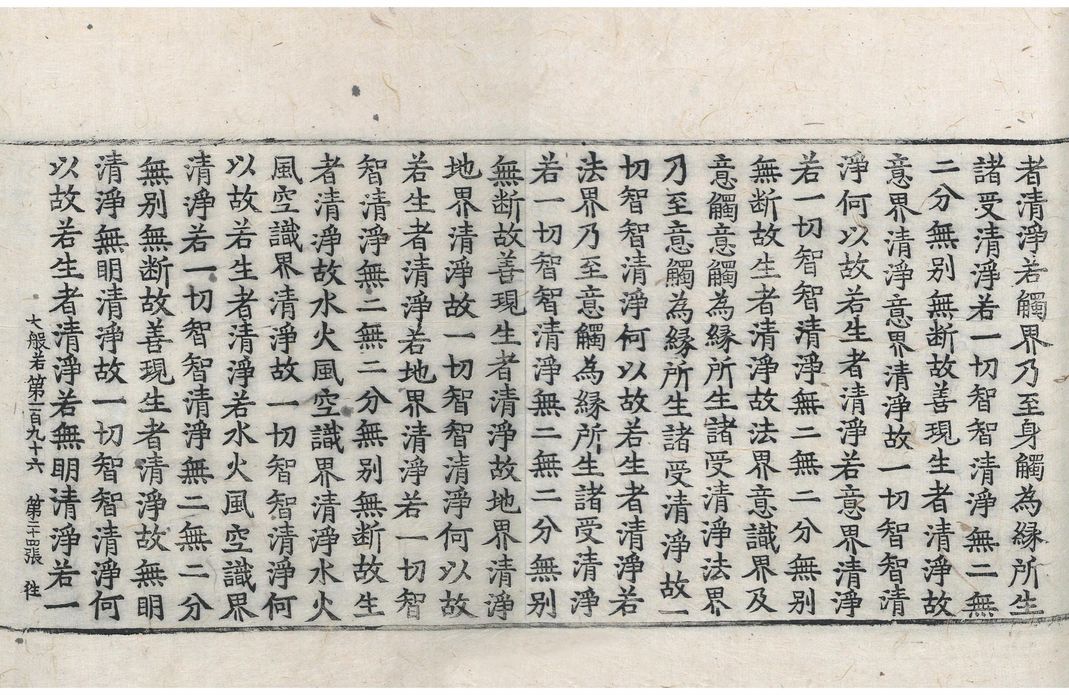 者清淨若觸界乃至身觸為縁所生
諸受清淨若一切智智清淨無二無
二分無别無断故善現生者清淨故
意界清淨意界清淨故一切智智清
淨何以故若生者清淨若意界清淨
若一切智智清淨無二無二分無别
無断故生者清淨故法界意識界及
意觸意觸為縁所生諸受清淨法界
乃至意觸為縁所生諸受清淨故一
切智智清淨何以故若生者清淨若
法界乃至意觸為縁所生諸受清淨
若一切智智清淨無二無二分無别
無断故善現生者清淨故地界清淨
地界清淨故一切智智清淨何以故
若生者清淨若地界清淨若一切智
智清淨無二無二分無别無断故生
者清淨故水火風空識界清淨水火
風空識界清淨故一切智智清淨何
以故若生者清淨若水火風空識界
清淨若一切智智清淨無二無二分
無别無断故善現生者清淨故無明
清淨無明清淨故一切智智清淨何
以故若生者清淨若無明清淨若一
大般若第一百九十六 第二十四張 往